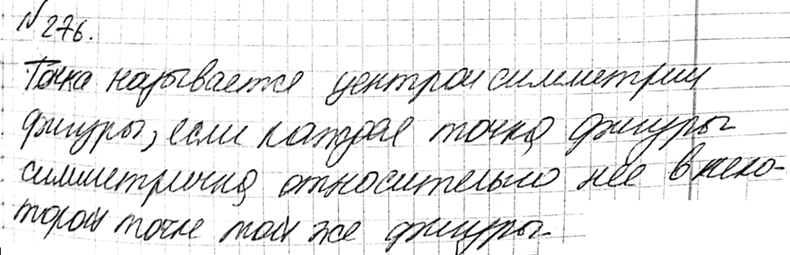 № 276.
Точка называется центром симметрии
фигуры, если каждая точка фигуры
симметрична относительно неё в неко-
торой точке той же фигуры.